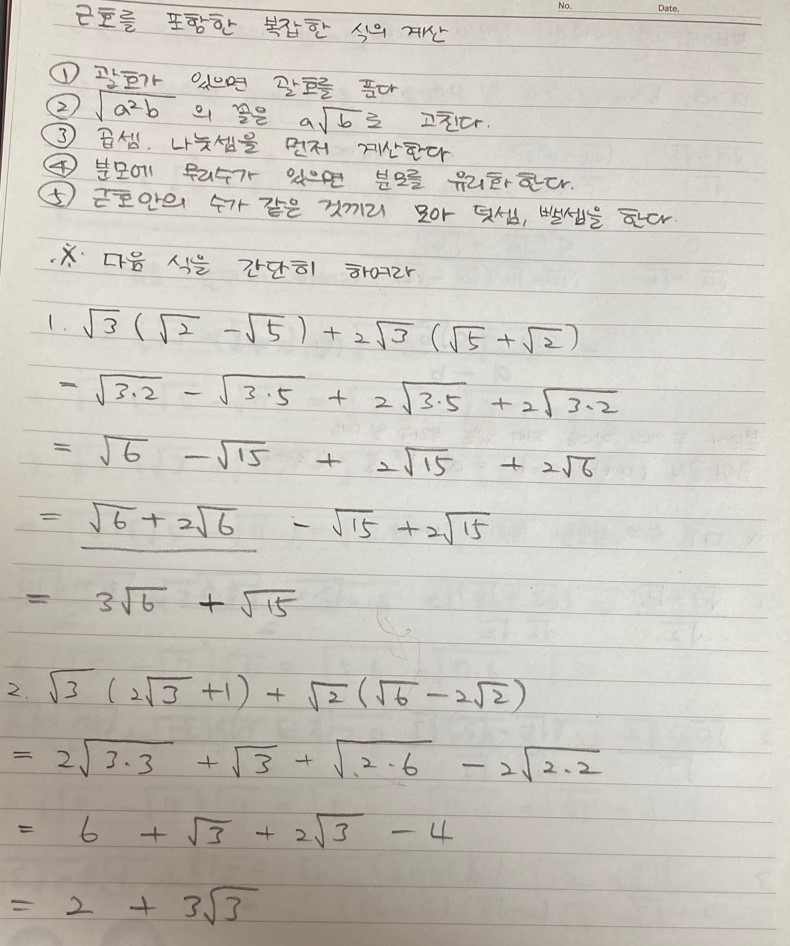 No. Date.
근호를 포함한 복잡한 식의 계산
① 괄호가 있으면 괄호를 푼다.
② √a²b 의 꼴은 a√b로 고친다.
③ 곱셈, 나눗셈을 먼저 계산한다.
④ 분모에 무리수가 있으면 분모를 유리화 한다.
⑤ 근호안의 수가 같은 것끼리 모아 덧셈, 뺄셈을 한다.
※ 다음 식을 간단히 하여라
1. √3 (√2 - √5) + 2√3 (√5 + √2)
= √3·2 - √3·5 + 2√3·5 + 2√3·2
= √6 - √15 + 2√15 + 2√6
= √6 + 2√6 - √15 + 2√15
= 3√6 + √15
2. √3 (2√3 + 1) + √2 (√6 - 2√2)
= 2√3·3 + √3 + √2·6 - 2√2·2
= 6 + √3 + 2√3 - 4
= 2 + 3√3